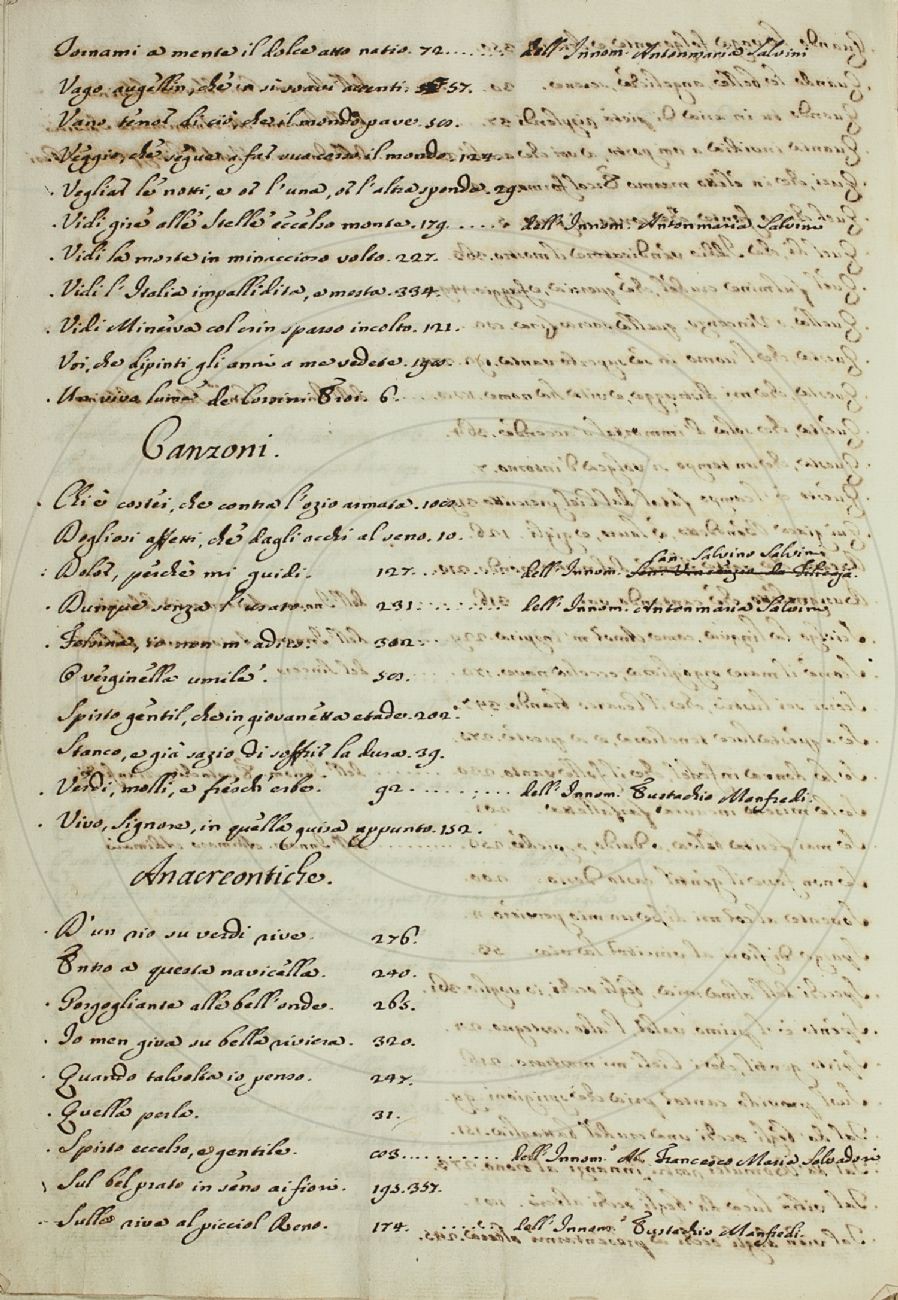 Tornami a mente il dolce atto natio. 72...... dell' Innom. Antonmaria Salvini
Vago augellin, che in sì soavi accenti. 57.
Vano temor di ciò, che il mondo pave.
Veggio, che segue a far il mondo. 124.
Vegliar le notti, e or l'una, or l'altra sponda. 29.
Vidi gire alle Stelle eccelso monte. 179...... dell' Innom. Antonmaria Salvini
Vidi la morte in minaccioso volto. 227.
Vidi l'Italia impallidita, e mesta. 334.
Vidi Minerva col crin sparso incolto. 121.
Voi, che dipinti gli anni a me vedete.
viva lume de Eroi. 6.
Canzoni.
Chi è costei, che contra l'ozio armata.
Dogliosi affetti, che dagli occhi al seno. 10.
Dolor, perchè mi guidi. 127....... dell' Innom. Can. Salvino Salvini
Dunque senza l'usato. 231......... dell' Innom. Antonmaria Salvini
io non m'adiro. 302.
O verginella umile.
Spirto gentil, che in giovanetta etade. 202.
Stanco, e già sazio di soffrir la dura. 39.
Verdi, molli, e fresch' erbe. 92......... dell' Innom. Eustachio Manfredi.
Vivo, Signore, in quella guisa appunto. 152.
Anacreontiche.
D'un rio su verdi rive. 276.
Entro a questa navicella. 240.
Gorgogliante alle bell'onde. 265.
Io men giva su bella riviera. 320.
Quando talvolta io penso. 247.
Quella perla. 31.
Spirto eccelso, e gentile. ........... dell' Innom.o Ab. Francesco Maria Salvadori
Sul bel prato in seno ai fiori. 195.357.
Sulla riva al picciol Reno. 174. ...... dell' Innom.o Eustachio Manfredi.